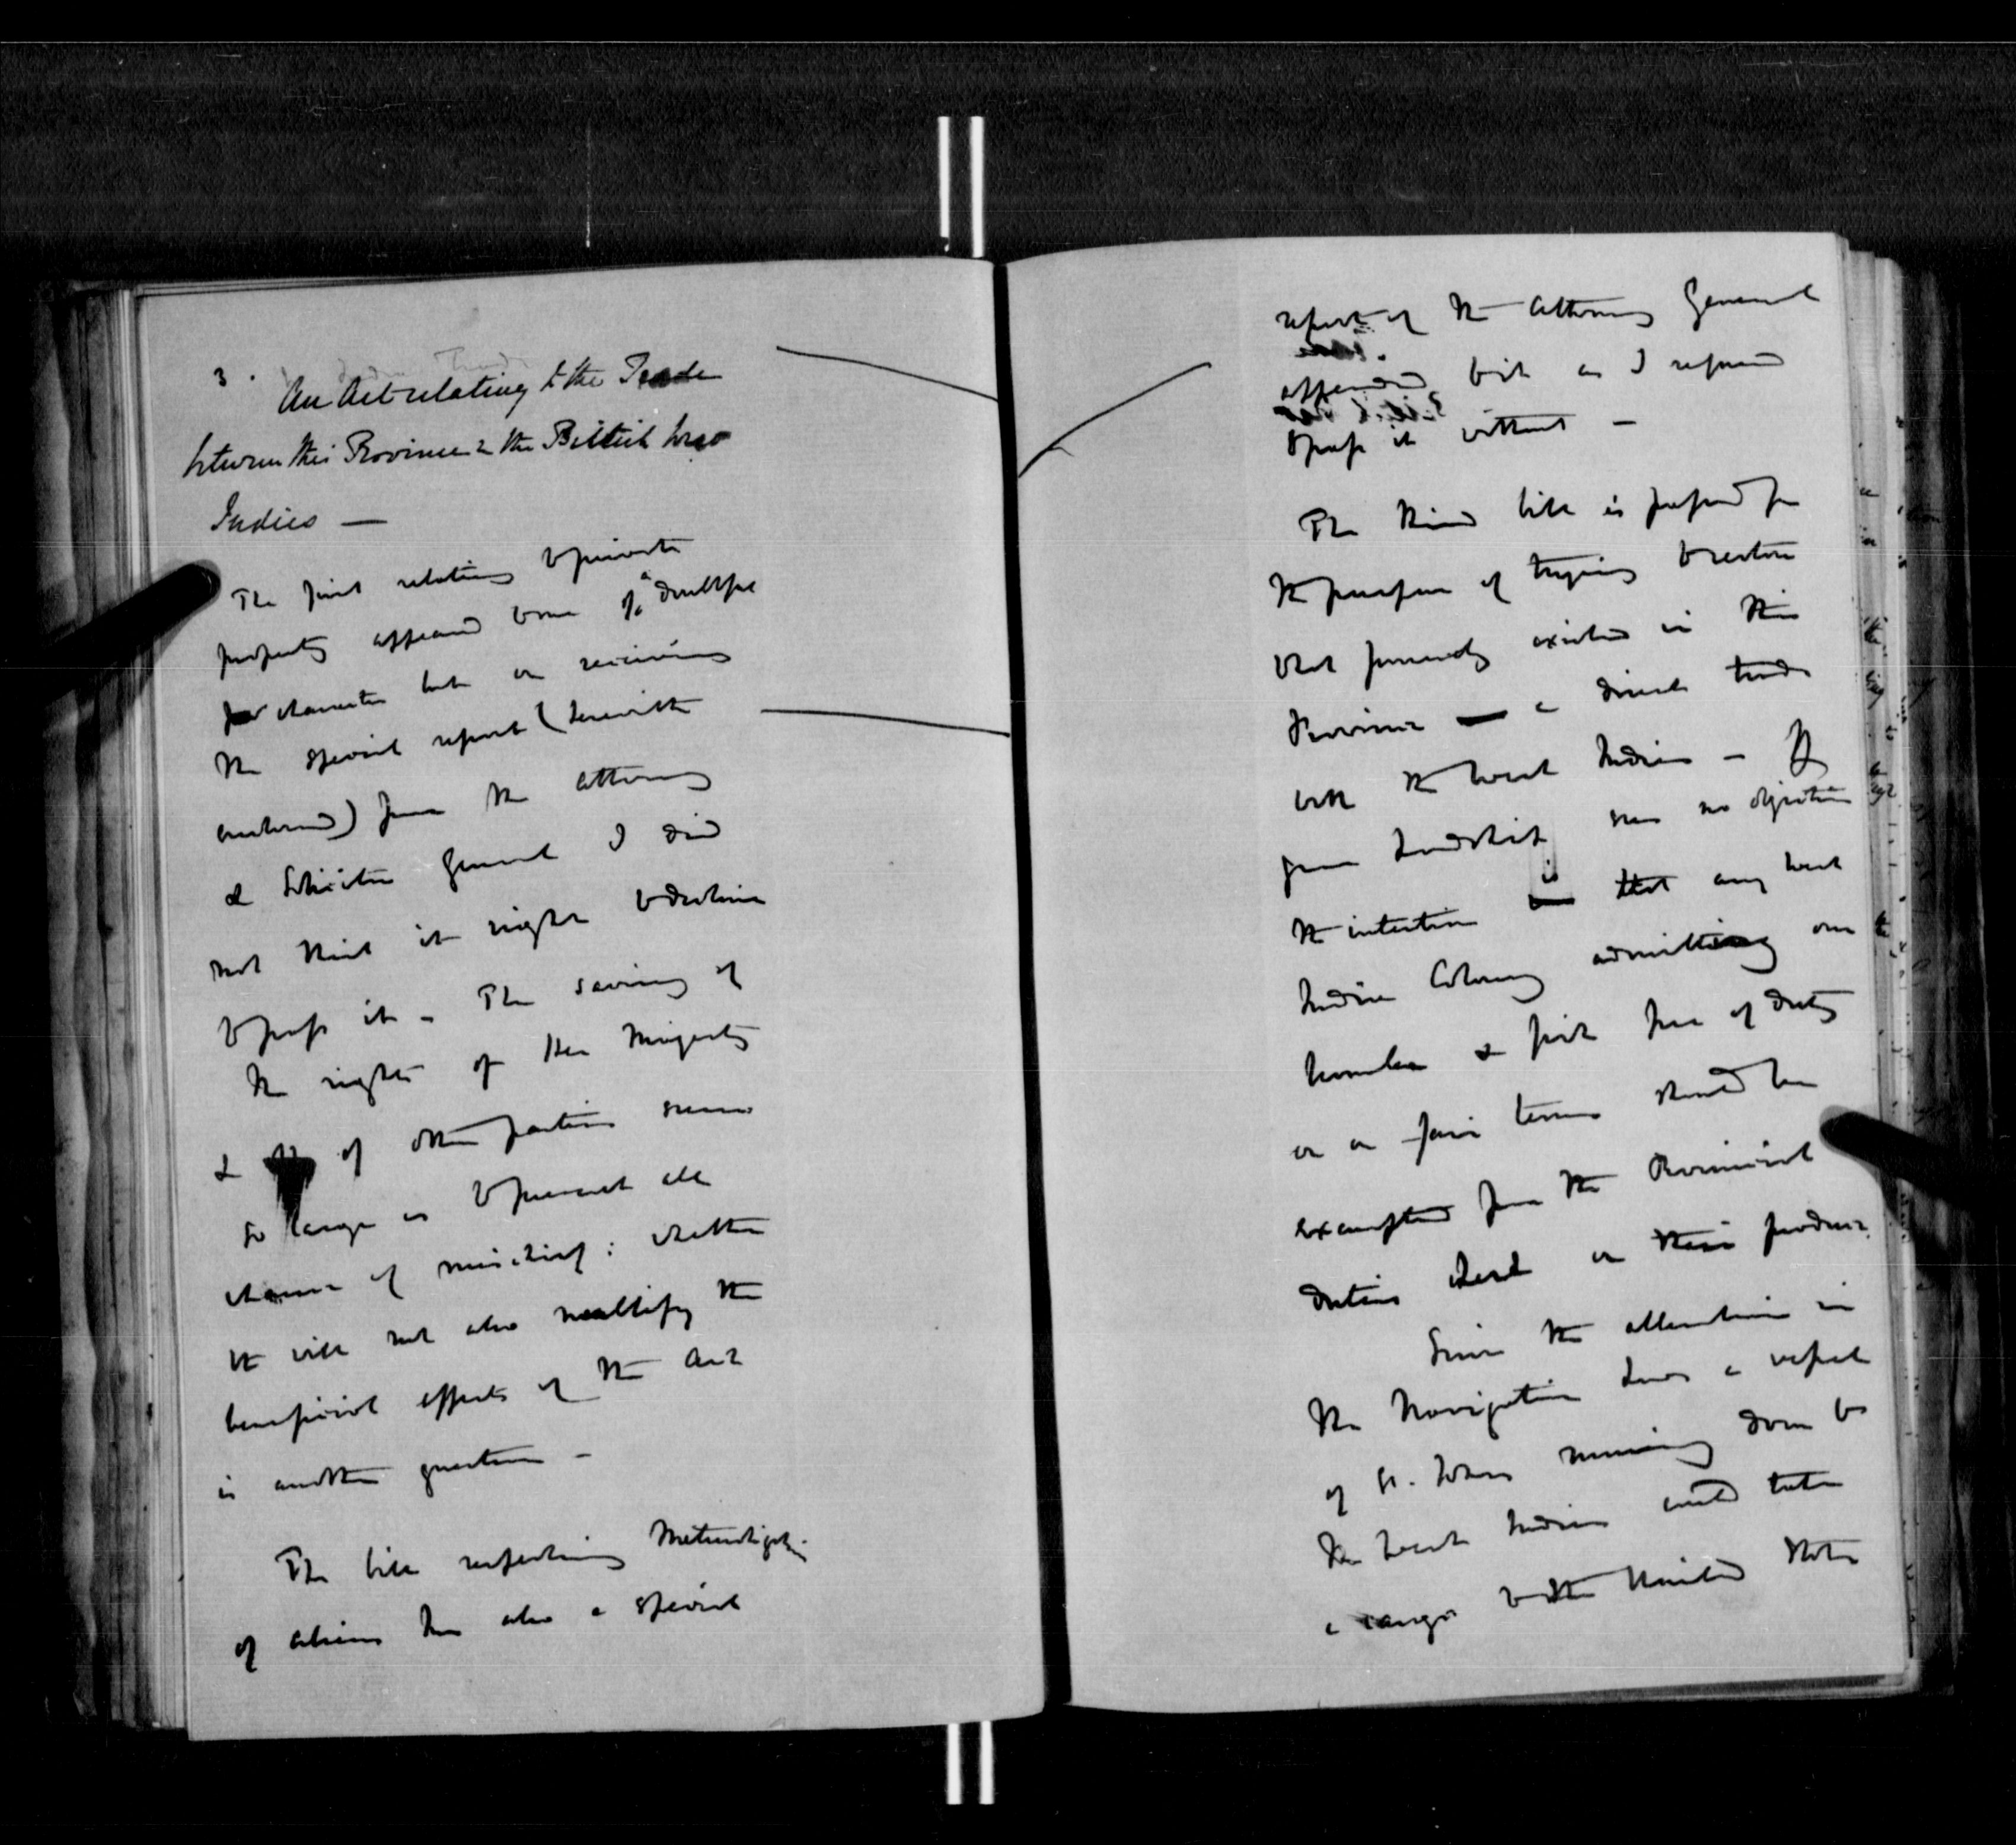 3.
An Act relating to the Trade
between this Province & the British West
Indies —
The first relating to private
property appeared to me of a doubtful
character but on receiving
the special report (herewith
enclosed) from the Attorney
& Solicitor General I did
not think it right to decline
to pass it – The saving of
the rights of Her Majesty
& of other parties seems
so large as to prevent all
chance of mischief: whether
it will not also neutralify the
beneficial effects of the Act
is another question –
The bill respecting
of aliens has also a special
report of the Attorney General
appended but as I refused
to pass it without –
The third bill is passed for
the purpose of trying to restore
what formerly existed in this
Province a direct trade
with the West Indies – If
your Lordship sees no objection
the intention is that any West
Indian Colony admitting our
lumber & fish free of duty
or on fair terms should be
exempted from the Provincial
duties on their produce.
Since the alteration in
the Navigation Laws a vessel
of St. John running down to
the West Indies could take
a cargo to the United States